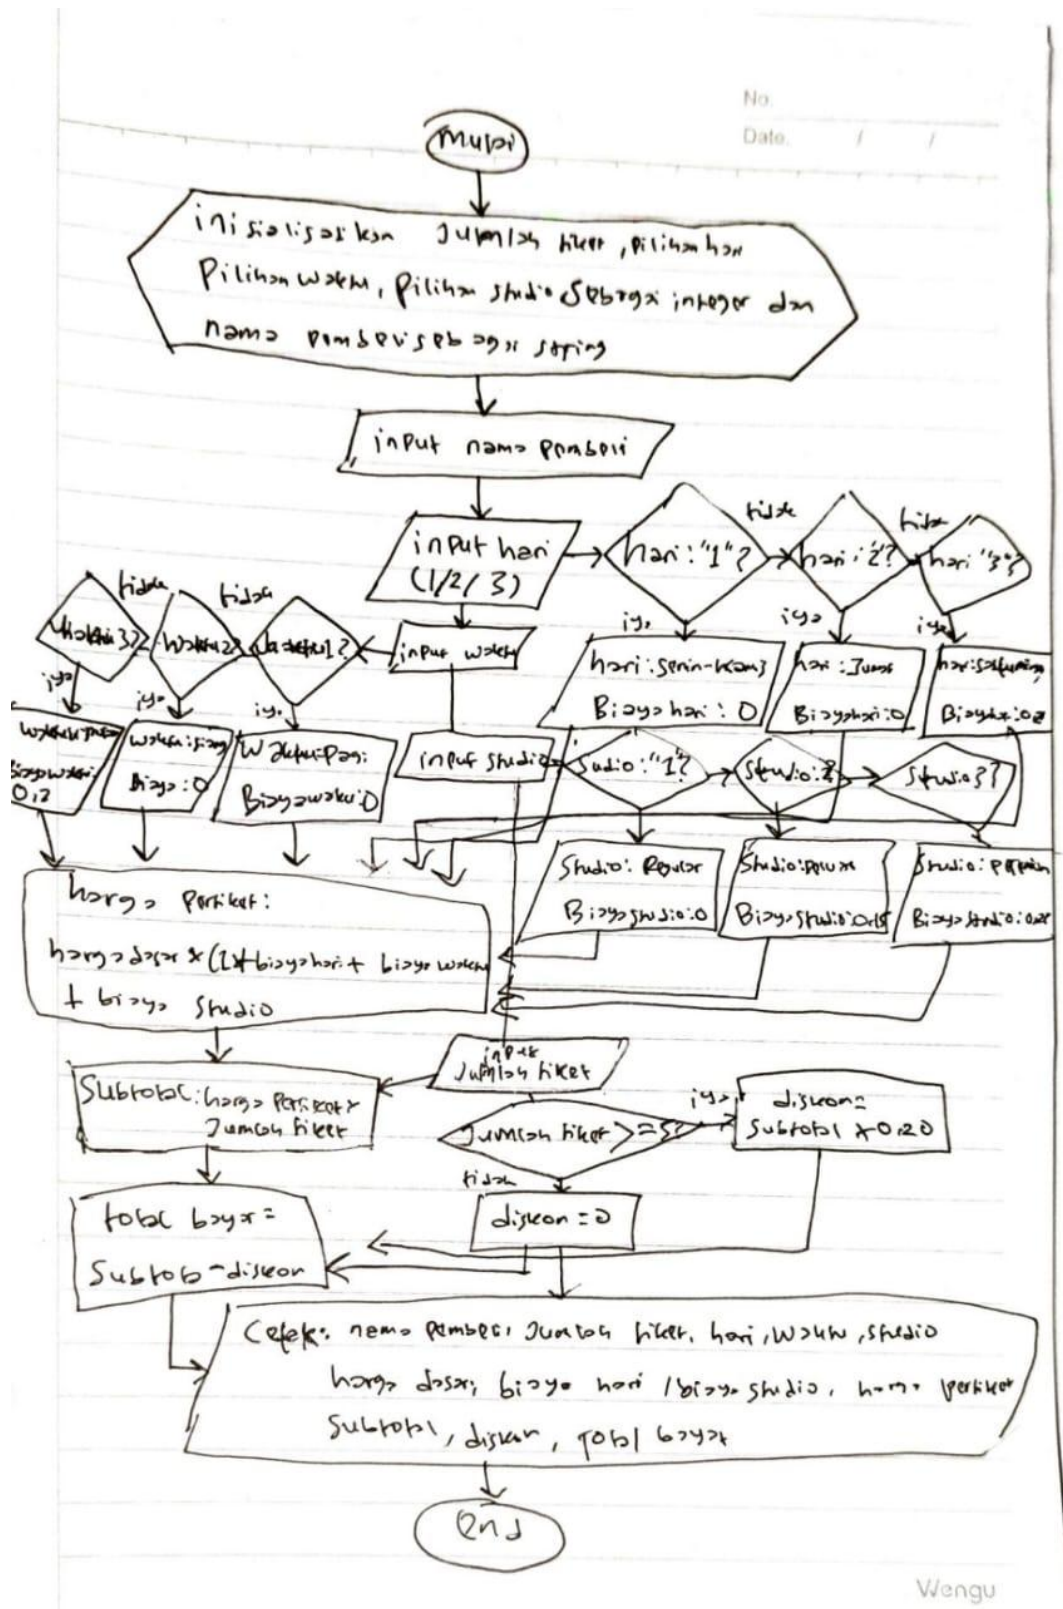 No.
Date. / /
mulai
inisialisasikan Jumlah tiket, pilihan hari
Pilihan waktu, pilihan studio sebagai integer dan
nama pembeli sebagai string
input nama pembeli
input hari
(1/2/3)
hari: "1"?
tidak
hari: "2"?
tidak
hari "3"?
iya
iya
iya
hari: senin-kamis
Biaya hari: 0
hari: Jumat
Biaya hari: 0
Biaya hari: 0.2
input waktu
waktu 1?
tidak
waktu 2?
tidak
waktu 3?
iya
iya
iya
waktu: Pagi
Biaya waktu: 0
waktu: siang
Biaya: 0
Biaya waktu:
0,2
input studio
studio: "1"?
studio 2?
studio 3?
Studio: Regular
Biaya studio: 0
Studio:
Biaya studio: 0.15
Studio:
Biaya studio:
harga Pertiket:
harga dasar * (1+biaya hari + biaya waktu
+ biaya studio
input
Jumlah tiket
Subtotal: harga Pertiket *
Jumlah tiket
Jumlah tiket >= 5?
iya
diskon =
Subtotal * 0.20
tidak
diskon = 0
total bayar =
Subtotal - diskon
Cetak: nama pembeli, Jumlah tiket, hari, waktu, studio
harga dasar, biaya hari / biaya studio, harga pertiket
Subtotal, diskon, total bayar
End
Wengu